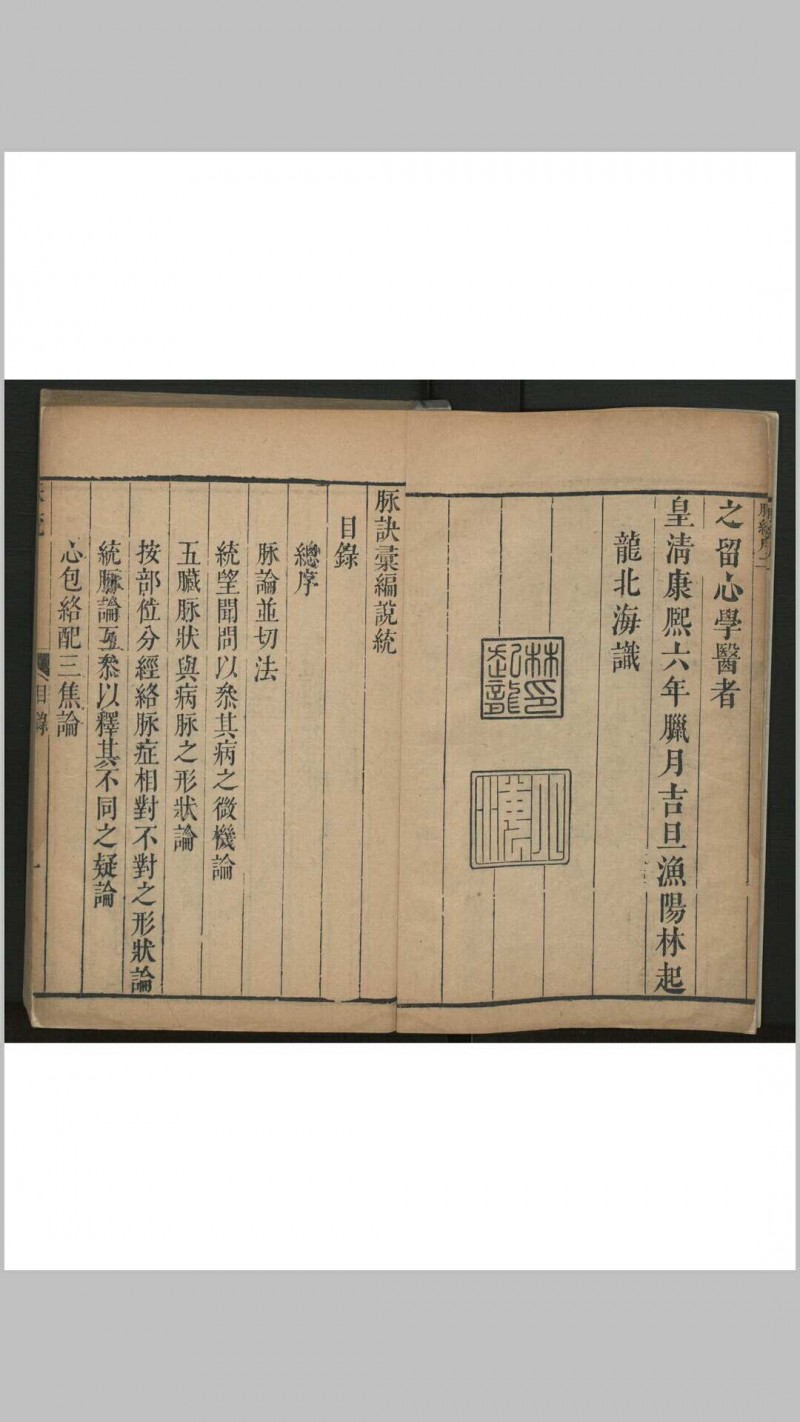 之留心學醫者
皇清康熙六年臘月吉旦漁陽林起
龍北海識
林起龍印
脉訣彙編說統
目錄
總序
脉論並切法
統望聞問以叅其病之微機論
五臟脉狀與病脉之形狀論
按部位分經絡脉症相對不對之形狀論
統脉論互叅以釋其不同之疑論
心包絡配三焦論
目錄